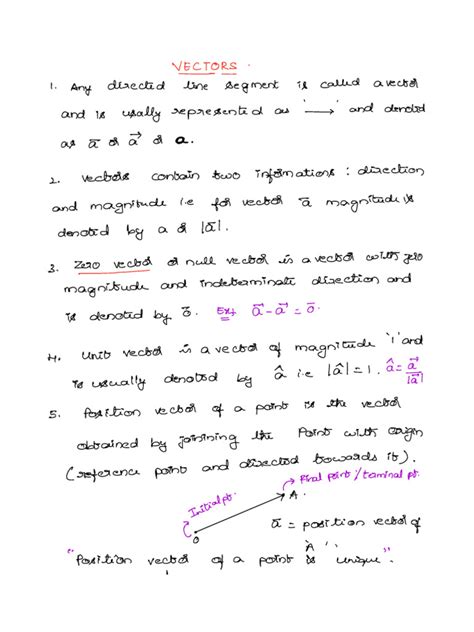 VECTORS.
1. Any directed line segment is called a vector
and is usually represented as '⟶' and denoted
as a̅ or a⃗ or a.
2. Vectors contain two informations : direction
and magnitude i.e for vector a̅ magnitude is
denoted by a or |a̅|.
3. Zero vector or null vector is a vector with zero
magnitude and indeterminate direction and
is denoted by o̅. Ex: a⃗ - a⃗ = o̅.
4. Unit vector is a vector of magnitude '1' and
is usually denoted by â i.e |â| = 1. â = a⃗/|a⃗|
5. Position vector of a point is the vector
obtained by joinining the Point with origin
(reference point and directed towards it).
Final point / Taminal pt.
Initial pt.
A.
O
a̅ = position vector of
A'.
"Position vector of a point is unique".